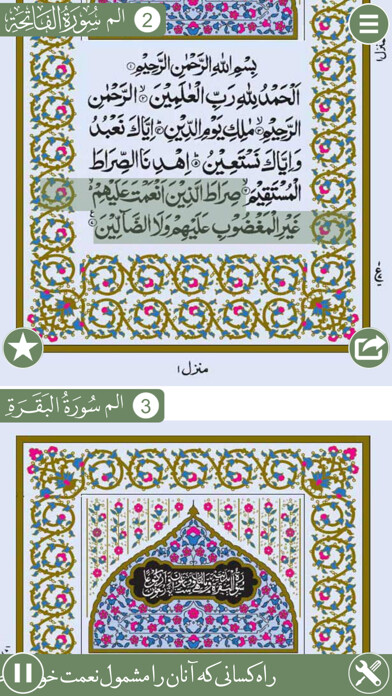 2 الم سُوْرَةُ الْفَاتِحَةِ
بِسْمِ اللهِ الرَّحْمٰنِ الرَّحِيْمِ ۝۱
اَلْحَمْدُ لِلّٰهِ رَبِّ الْعٰلَمِيْنَ ۝۲ الرَّحْمٰنِ
الرَّحِيْمِ ۝۳ مٰلِكِ يَوْمِ الدِّيْنِ ۝۴ اِيَّاكَ نَعْبُدُ
وَاِيَّاكَ نَسْتَعِيْنُ ۝۵ اِهْدِنَا الصِّرَاطَ
الْمُسْتَقِيْمَ ۝۶ صِرَاطَ الَّذِيْنَ اَنْعَمْتَ عَلَيْهِمْ
غَيْرِ الْمَغْضُوْبِ عَلَيْهِمْ وَلَا الضَّآلِّيْنَ ۝۷
منزل ۱
3 الم سُوْرَةُ الْبَقَرَةِ
راه كسانى كه آنان را مشمول نعمت خو